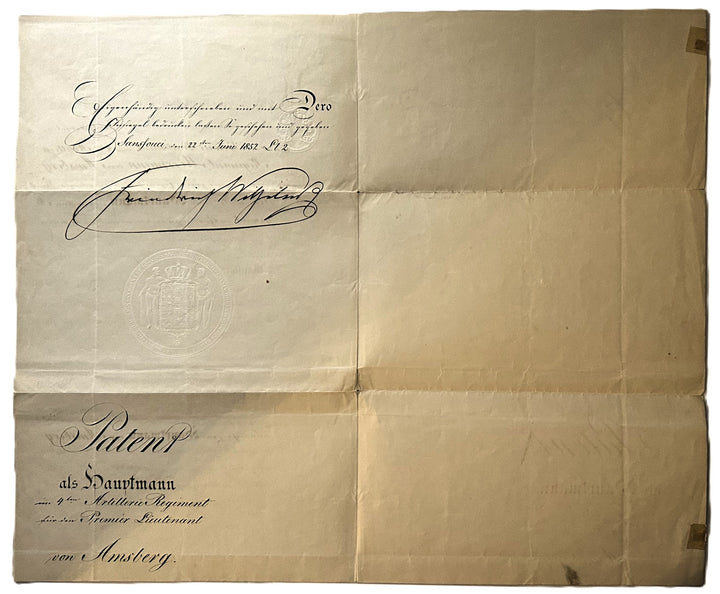 Eigenhändig unterschrieben und mit Dero
Insiegel bedrucken lassen. So geschehen und gegeben
Sanssouci, den 22ten Juni 1852
Friedrich Wilhelm
Patent
als Hauptmann
im 4ten Artillerie Regiment
für den Premier Lieutenant
von Amsberg.